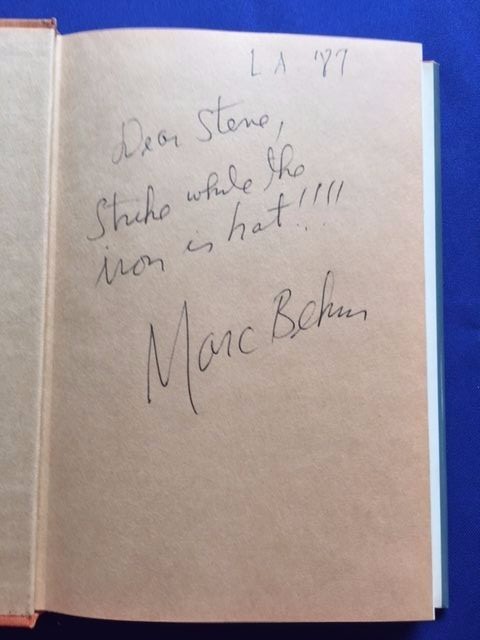 LA '87
Dear Steve,
Strike while the
iron is hot!!!!
Marc Behm